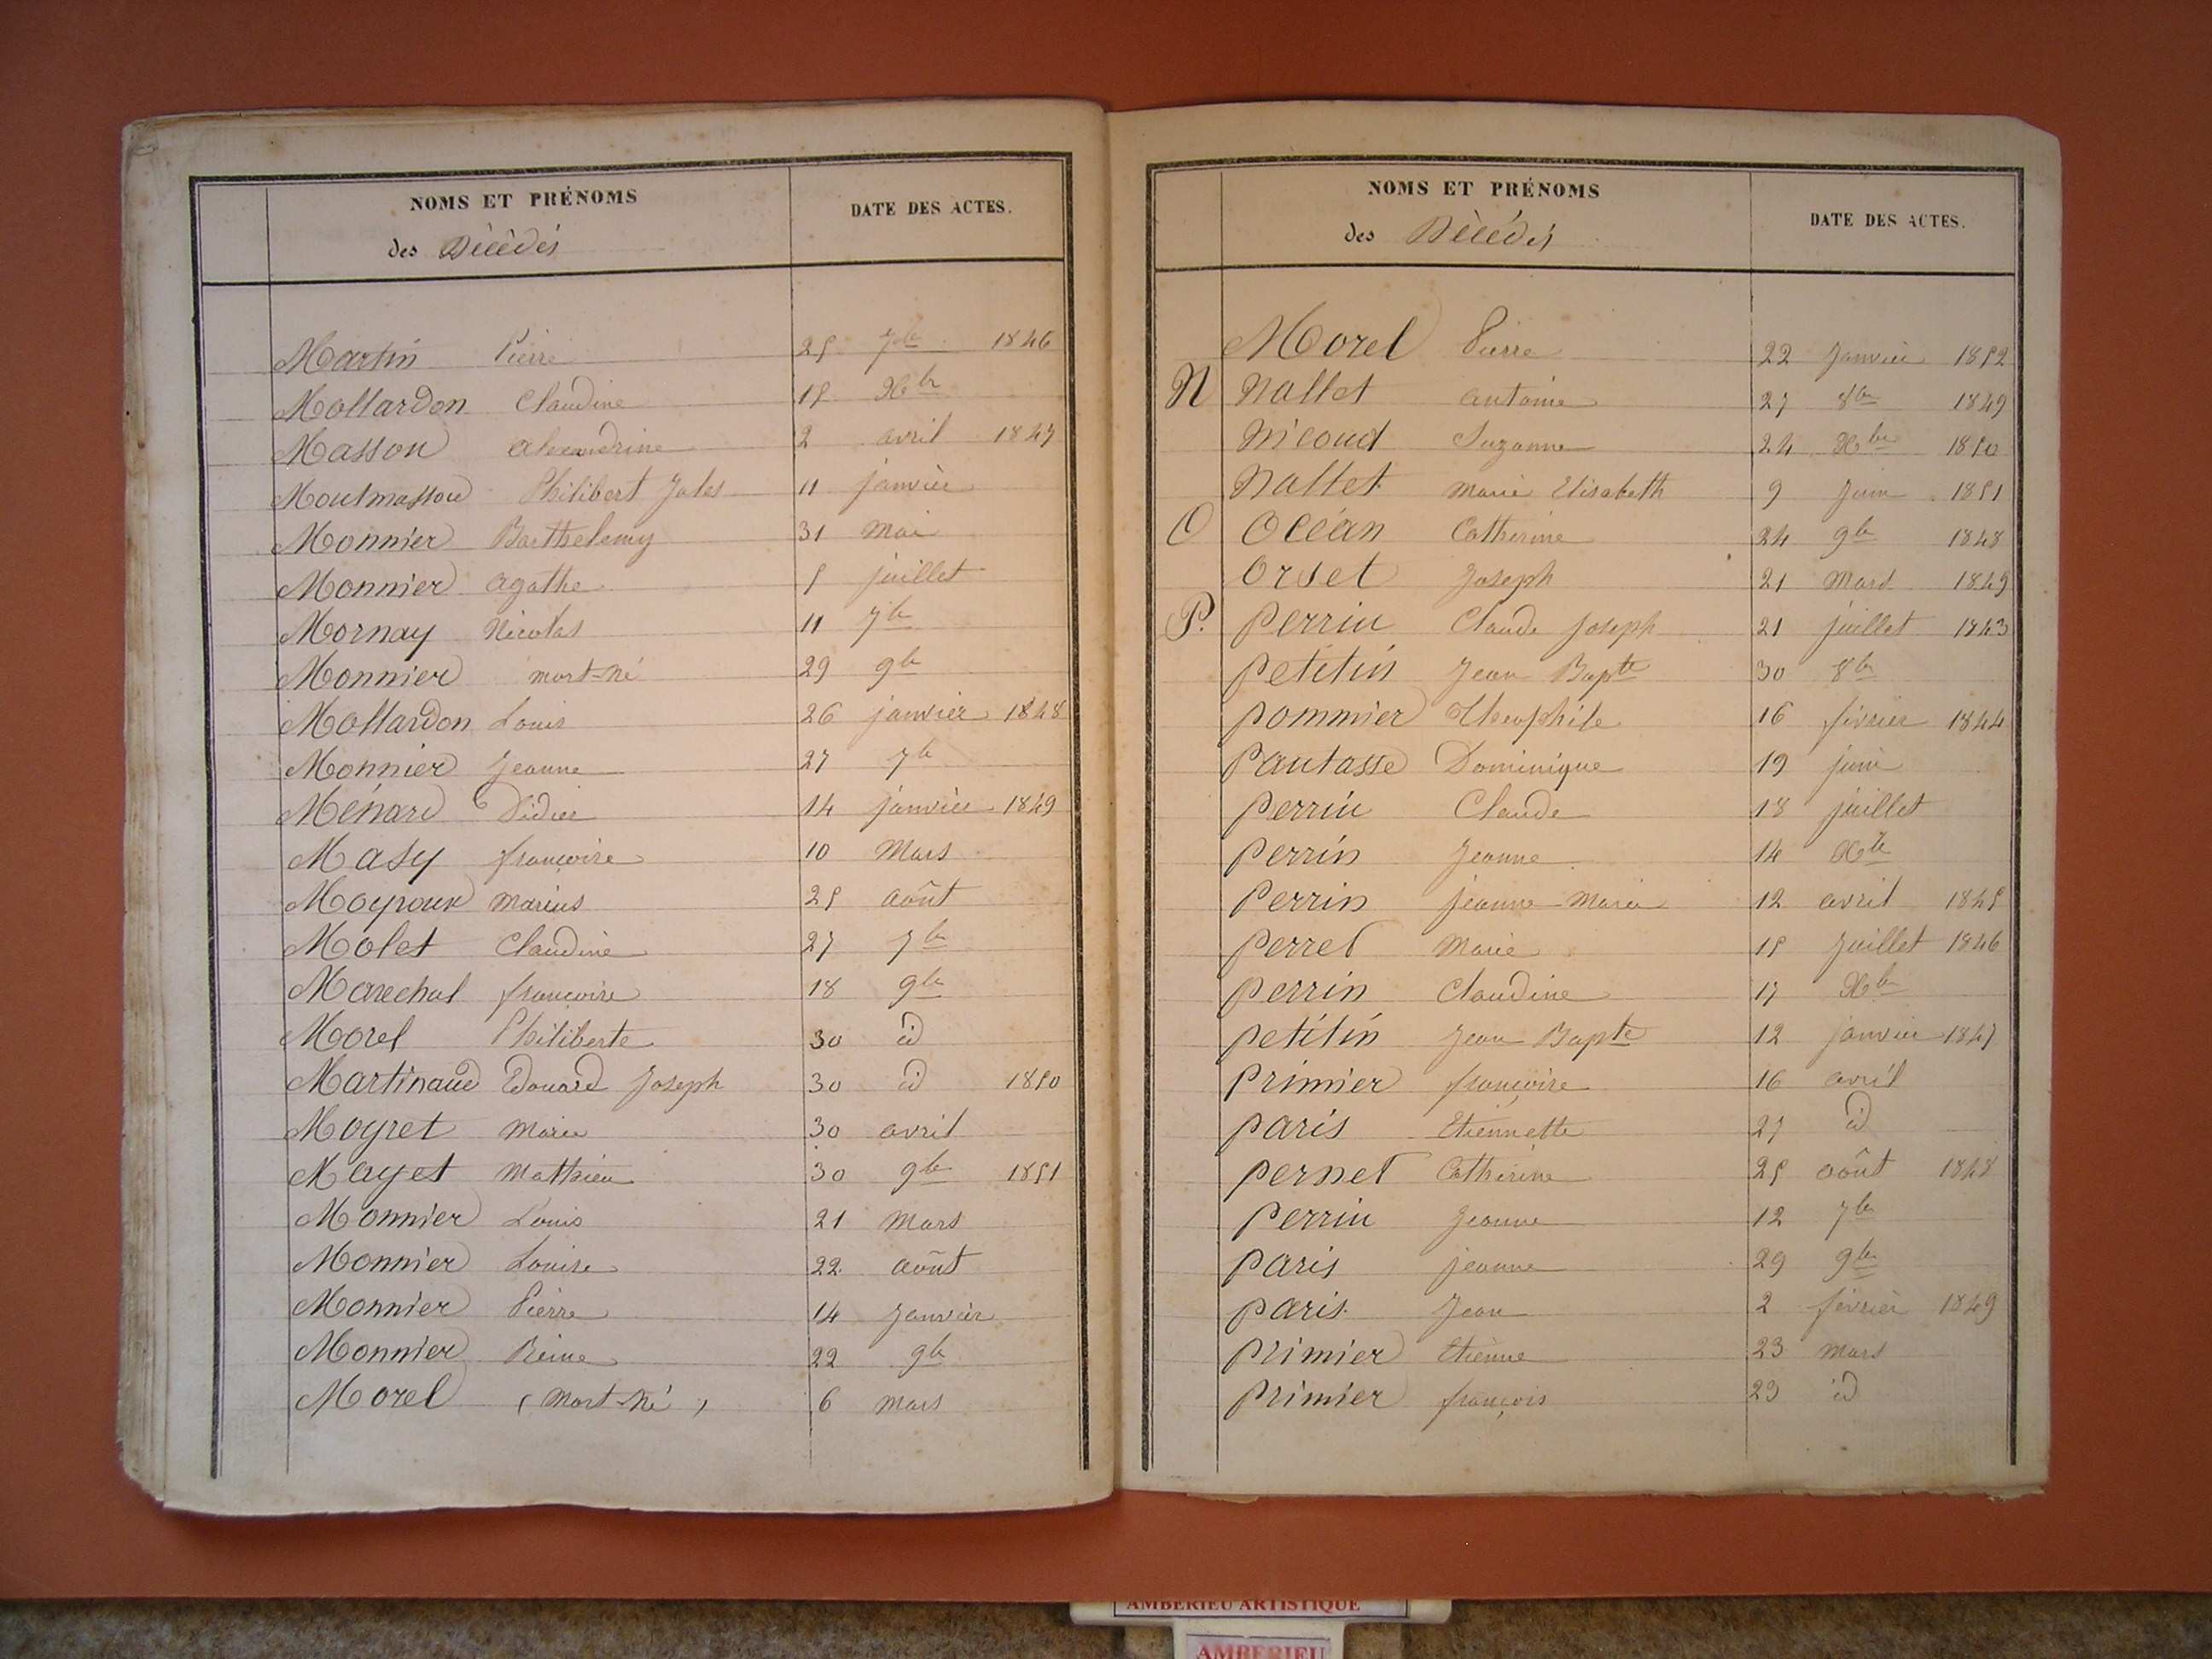 NOMS ET PRÉNOMS
des Décédés
DATE DES ACTES.
Martin Pierre 25 7bre 1846
Mollardon Claudine 15 Xbre
Masson alexandrine 2 avril 1847
Moulmasson Philibert Jules 11 janvier
Monnier Barthelemy 31 mai
Monnier agathe 5 juillet
Mornay Nicolas 11 7bre
Monnier mort-né 29 9bre
Mollardon Louis 26 janvier 1848
Monnier Jeanne 27 7bre
Ménard Didier 14 janvier 1849
Masy françoise 10 Mars
Moyroux marius 25 août
Molet Claudine 27 7bre
Marechal françoise 18 9bre
Morel Philiberte 30 id
Martinaud Edouard Joseph 30 id 1850
Moyret Marie 30 avril
Mayet Mathieu 30 9bre 1851
Monnier Louis 21 Mars
Monnier Louise 22 août
Monnier Pierre 14 Janvier
Monnier Reine 22 9bre
Morel (mort-né) 6 mars
NOMS ET PRÉNOMS
des Décédés
DATE DES ACTES.
Morel Pierre 22 Janvier 1852
N Nallet antoine 27 8bre 1849
Nicoud Suzanne 24 Xbre 1850
Nallet marie Elisabeth 9 Juin 1851
O Océan Catherine 24 9bre 1848
Orset Joseph 21 Mars 1849
P. Perrin Claude Joseph 21 juillet 1843
Petitin Jean Bapte 30 8bre
Pommier Theophile 16 février 1844
Pautasse Dominique 19 juin
Perrin Claude 18 juillet
Perrin Jeanne 14 Xbre
Perrin jeanne Marie 12 avril 1845
Perret Marie 15 Juillet 1846
Perrin Claudine 17 Xbre
Petitin Jean Bapte 12 janvier 1847
Primier françoise 16 avril
Paris Etiennette 27 id
Pernet Catherine 25 août 1848
Perrin Jeanne 12 7bre
Paris jeanne 29 9bre
Paris Jean 2 février 1849
Primier Etienne 23 mars
Primier françois 23 id
AMBERIEU ARTISTIQUE
AMBERIEU